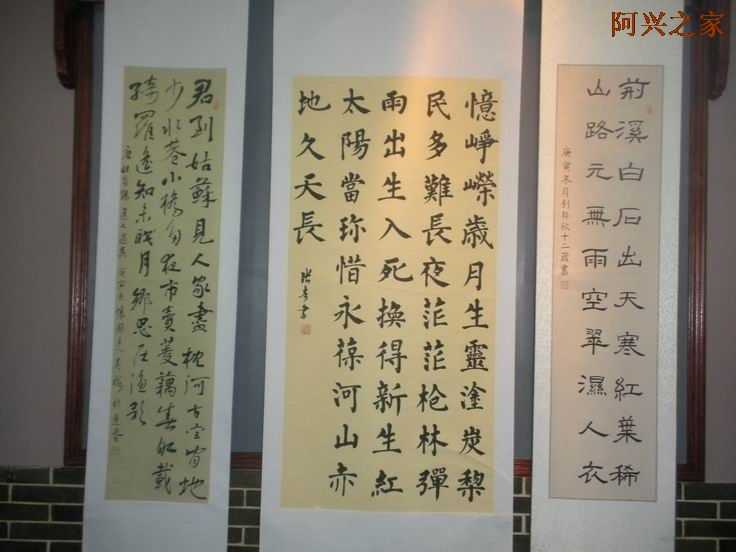 阿兴之家
荊溪白石出天寒紅葉稀
山路元無雨空翠濕人衣
庚寅冬月
十二歲書
憶崢嶸歲月生靈塗炭黎
民多難長夜茫茫枪林彈
雨出生入死換得新生紅
太陽當珎惜永葆河山赤
地久天長
君到姑蘇見人家盡枕河古宮閒地
少水巷小橋多夜市賣菱藕春船載
綺羅遙知未眠月鄉思在漁歌